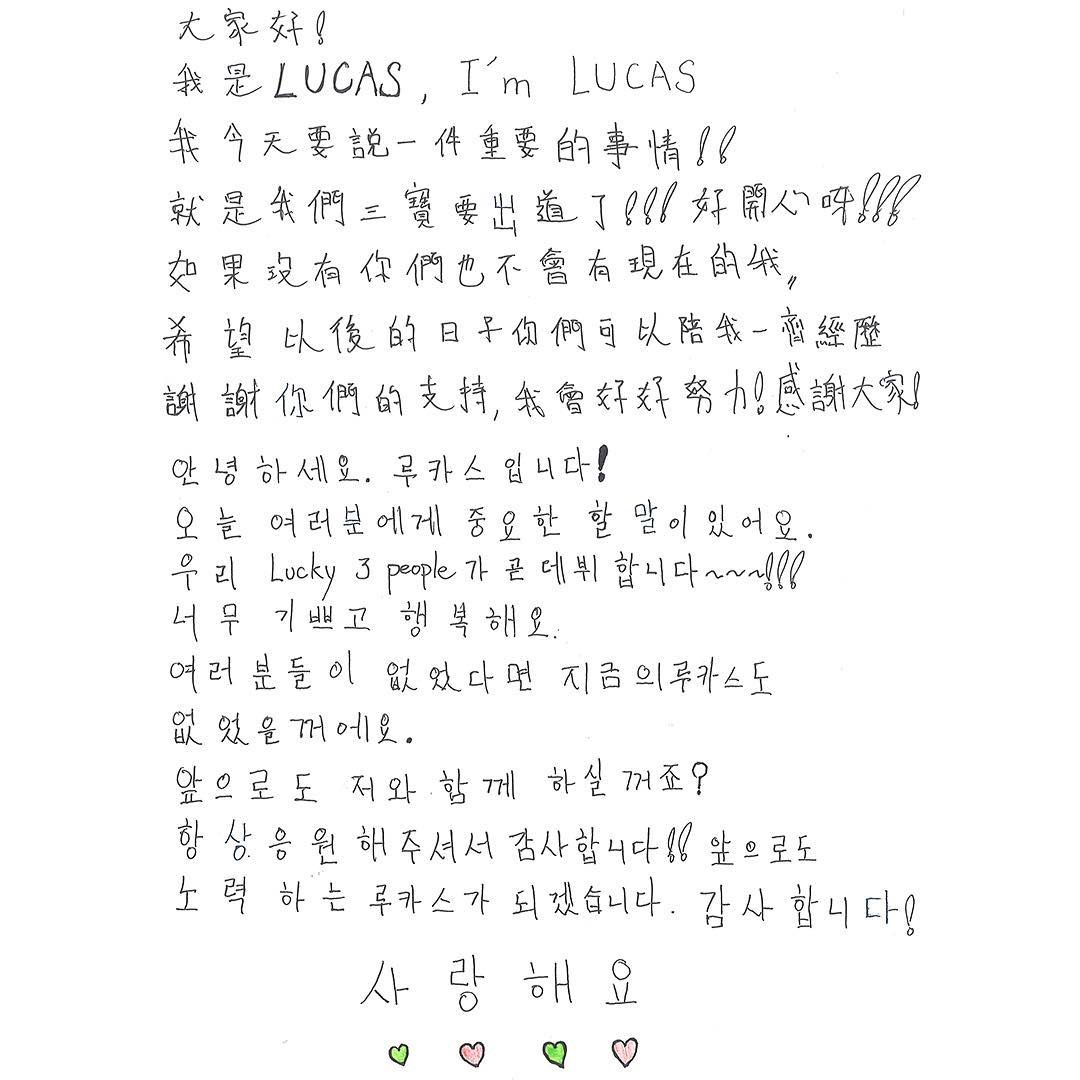 大家好!
我是LUCAS, I'm LUCAS
我今天要說一件重要的事情!!
就是我們三寶要出道了!!! 好開心呀!!!
如果沒有你們也不會有現在的我,,
希望以後的日子你們可以陪我一齊經歷
謝謝你們的支持, 我會好好努力! 感謝大家!
안녕하세요. 루카스입니다!
오늘 여러분에게 중요한 할 말이있어요.
우리 Lucky 3 people가 곧 데뷔합니다~~~!!!
너무 기쁘고 행복해요.
여러분들이 없었다면 지금의루카스도
없었을꺼에요.
앞으로도 저와 함께 하실꺼죠?
항상 응원해주셔서 감사합니다!! 앞으로도
노력하는 루카스가 되겠습니다. 감사합니다!
사랑해요